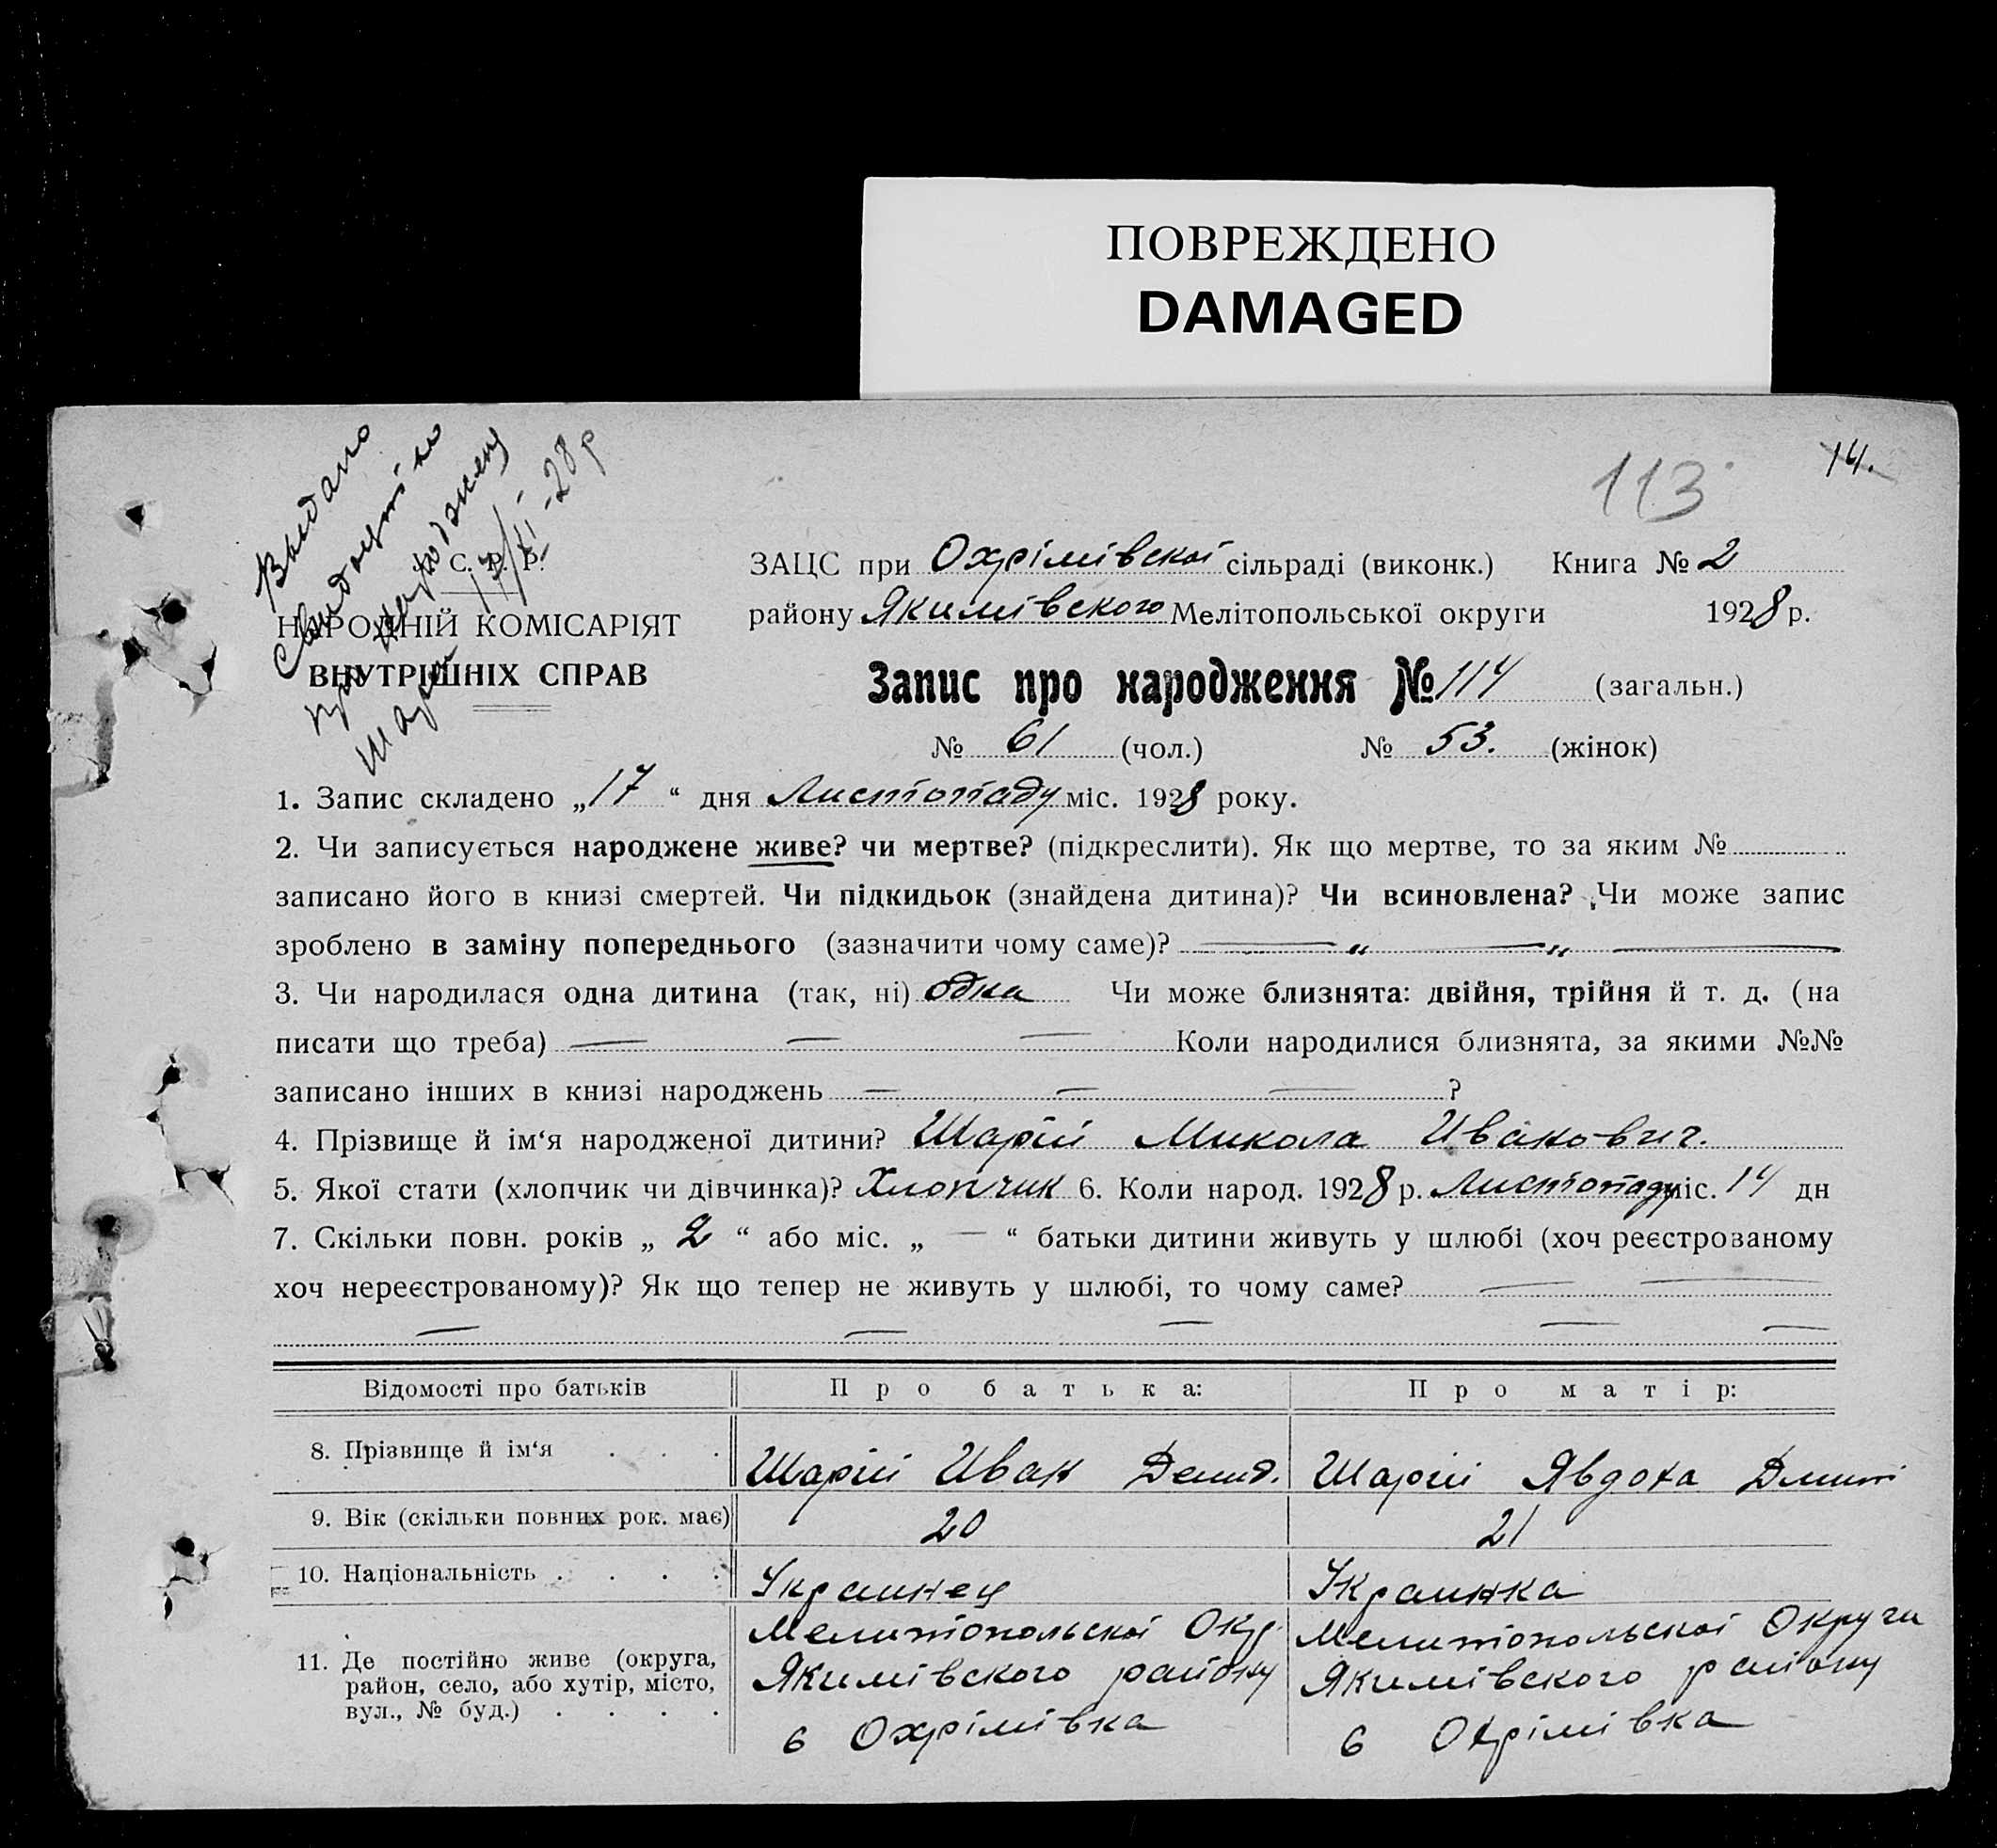 ПОВРЕЖДЕНО
DAMAGED
113
14.
Выдано
свидоцтво
про народжену
17/XI-28 р
С. Р. Р.
НАРОДНІЙ КОМІСАРІЯТ
ВНУТРІШНІХ СПРАВ
ЗАЦС при Охрімівскої сільраді (виконк.) Книга № 2
району Якимівского Мелітопольської округи 1928 р.
Запис про народження № 114 (загальн.)
№ 61 (чол.) № 53. (жінок)
1. Запис складено „17“ дня Листопаду міс. 1928 року.
2. Чи записується народжене живе? чи мертве? (підкреслити). Як що мертве, то за яким №
записано його в книзі смертей. Чи підкидьок (знайдена дитина)? Чи всиновлена? Чи може запис
зроблено в заміну попереднього (зазначити чому саме)? — „ — „ —
3. Чи народилася одна дитина (так, ні) одна Чи може близнята: двійня, трійня й т. д. (на
писати що треба) — — — Коли народилися близнята, за якими №№
записано інших в книзі народжень — — — ?
4. Прізвище й ім‘я народженої дитини? Шарій Микола Иванович.
5. Якої стати (хлопчик чи дівчинка)? Хлопчик 6. Коли народ. 1928 р. Листопаду міс. 14 дн
7. Скільки повн. років „ 2 “ або міс. „ — “ батьки дитини живуть у шлюбі (хоч реєстрованому
хоч нереєстрованому)? Як що тепер не живуть у шлюбі, то чому саме? — —
— — — — —
Відомості про батьків Про батька: Про матір:
8. Прізвище й ім‘я . . . Шарій Иван Демид. Шарій Явдоха Дмит
9. Вік (скільки повних рок. має) 20 21
10. Національність . . . . Украинец Украинка
11. Де постійно живе (округа, район, село, або хутір, місто, вул., № буд.) . . . .
Мелитопольскої Окр. Якимівского району
с Охрімівка
Мелитопольскої Округи
Якимівского району
с Охрімівка